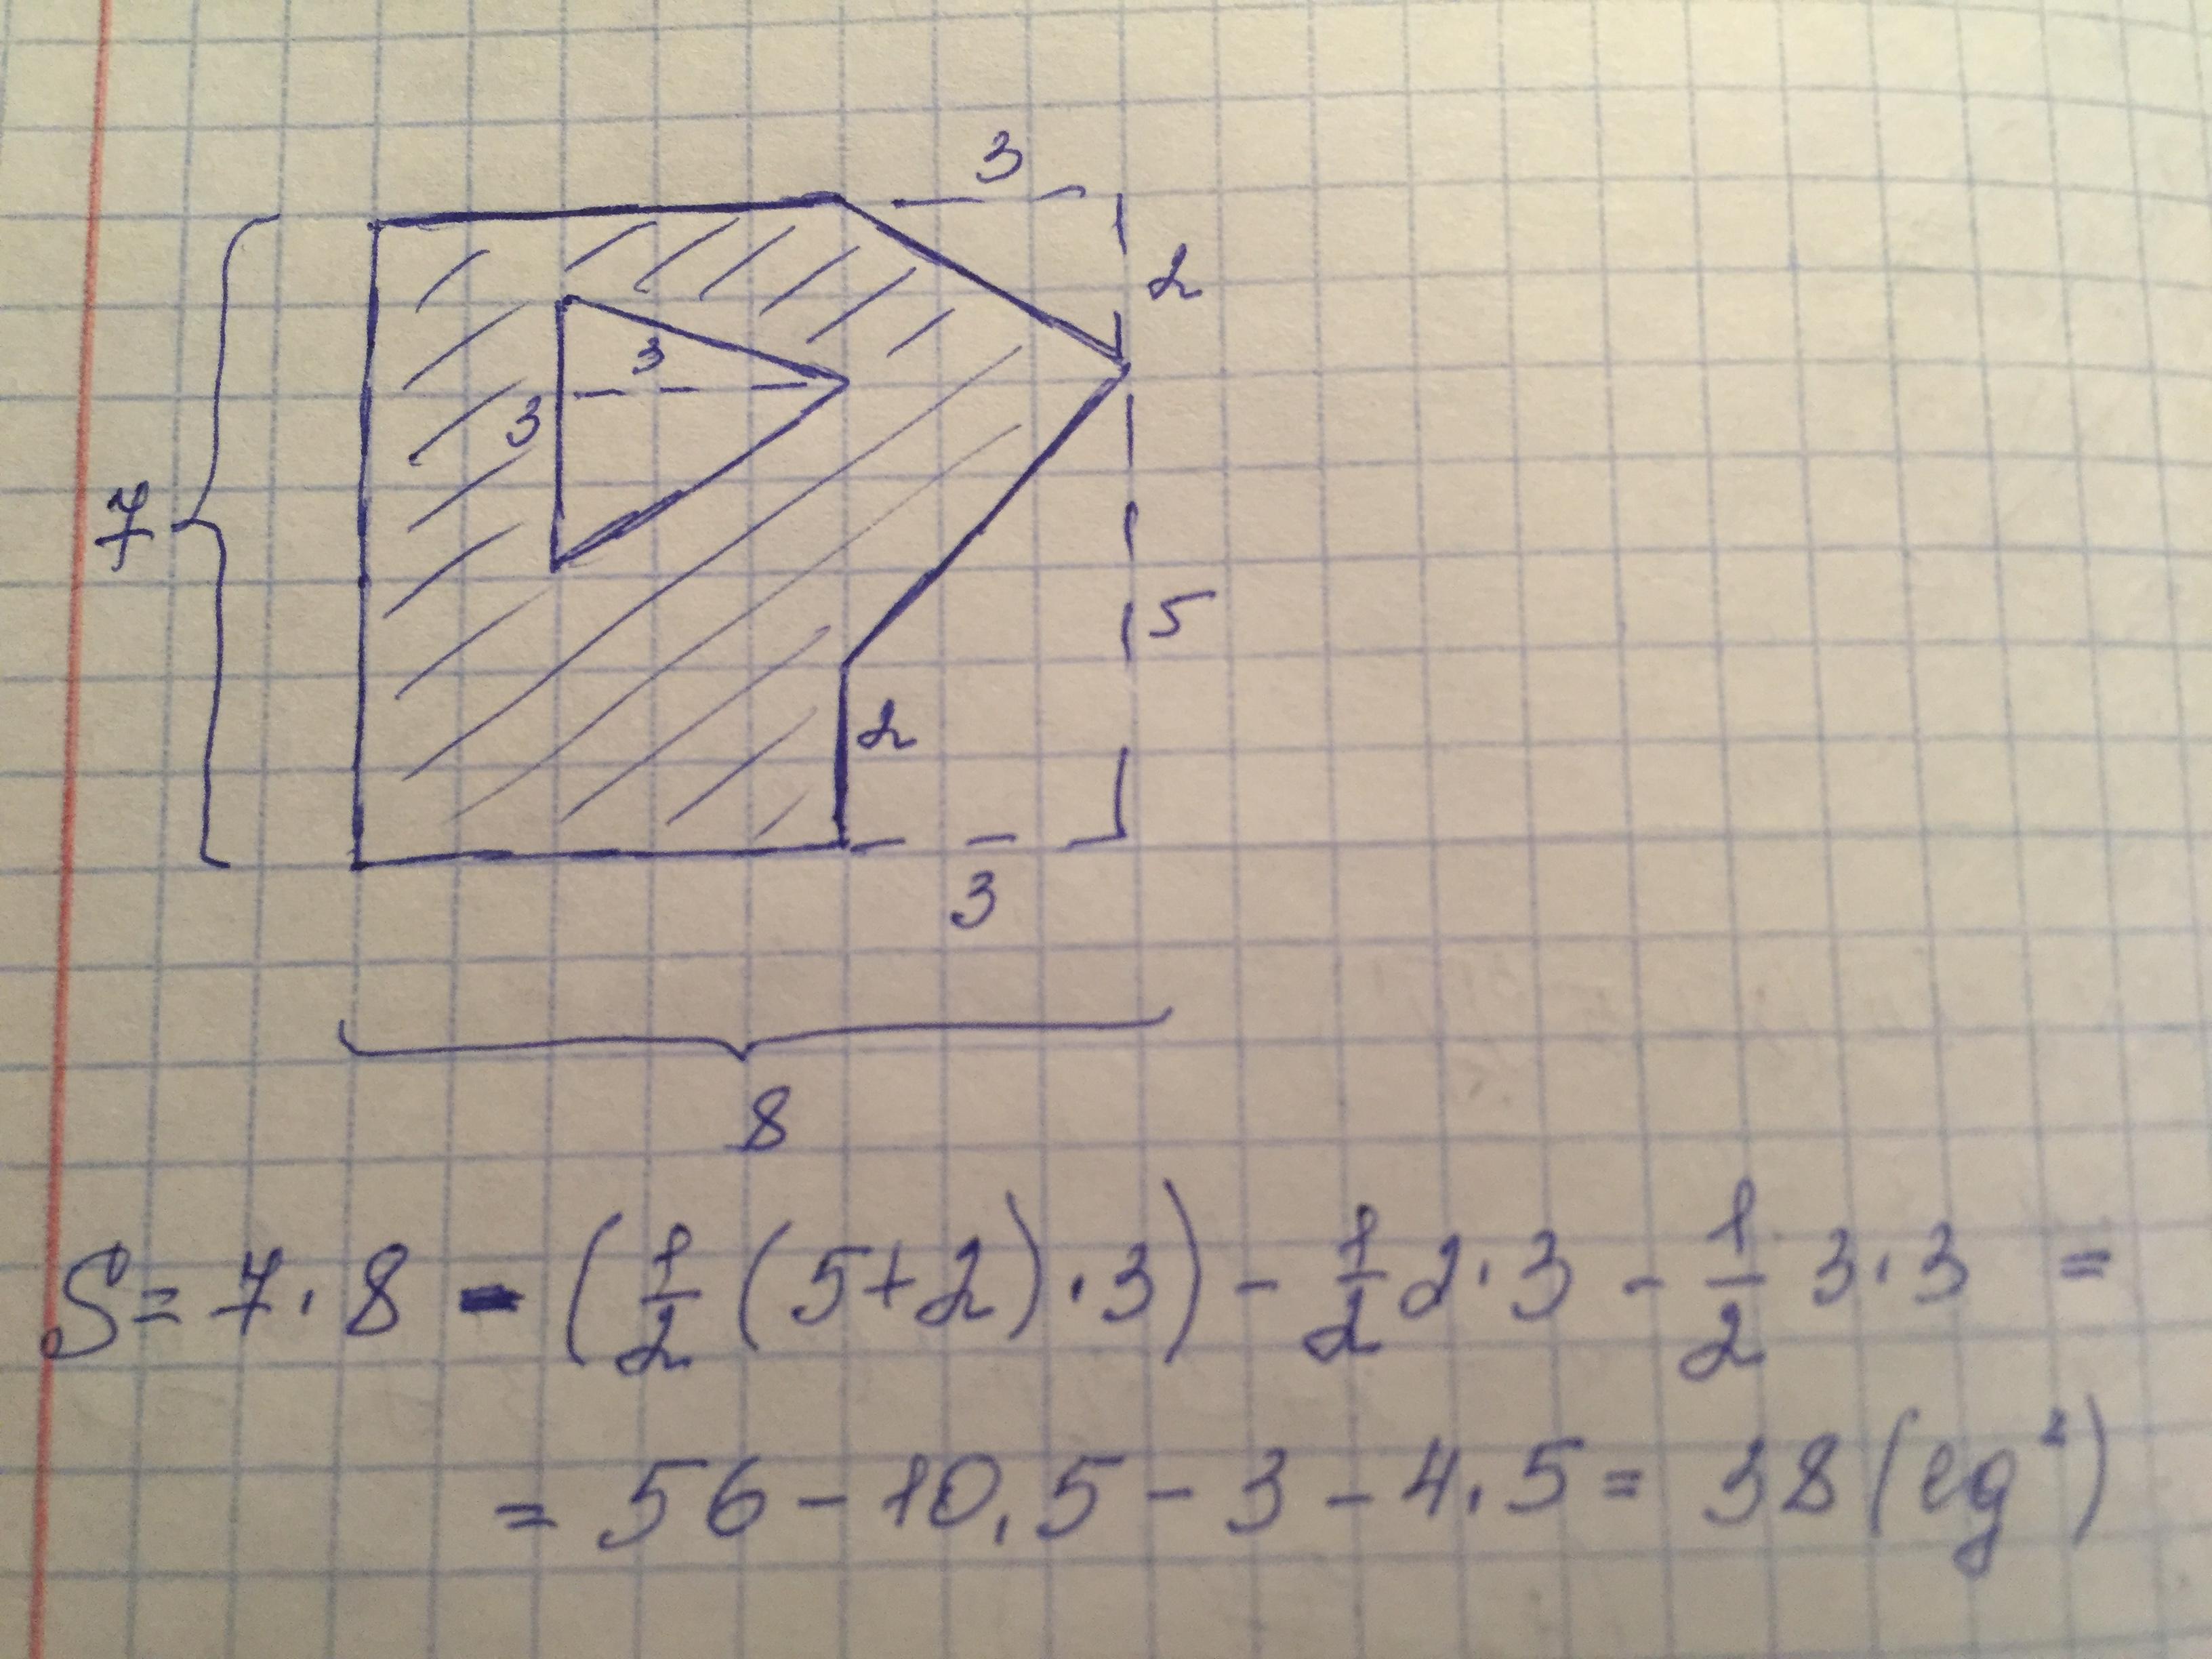 3
2
3
3
7
5
2
3
8
S = 7 · 8 - (1/2 (5+2) · 3) - 1/2 2 · 3 - 1/2 3 · 3 =
= 56 - 10,5 - 3 - 4,5 = 38 (eg²)